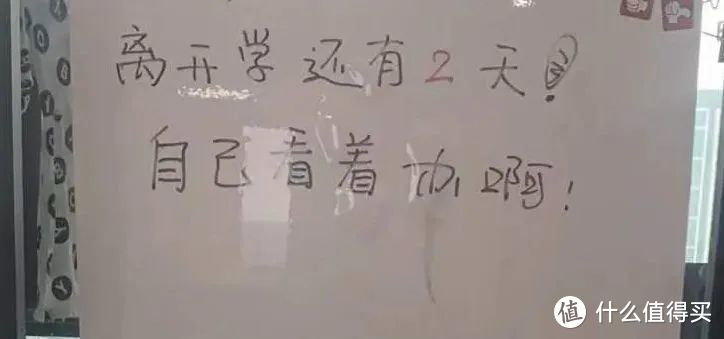 离开学还有2天!
自己看着办啊!
值 什么值得买